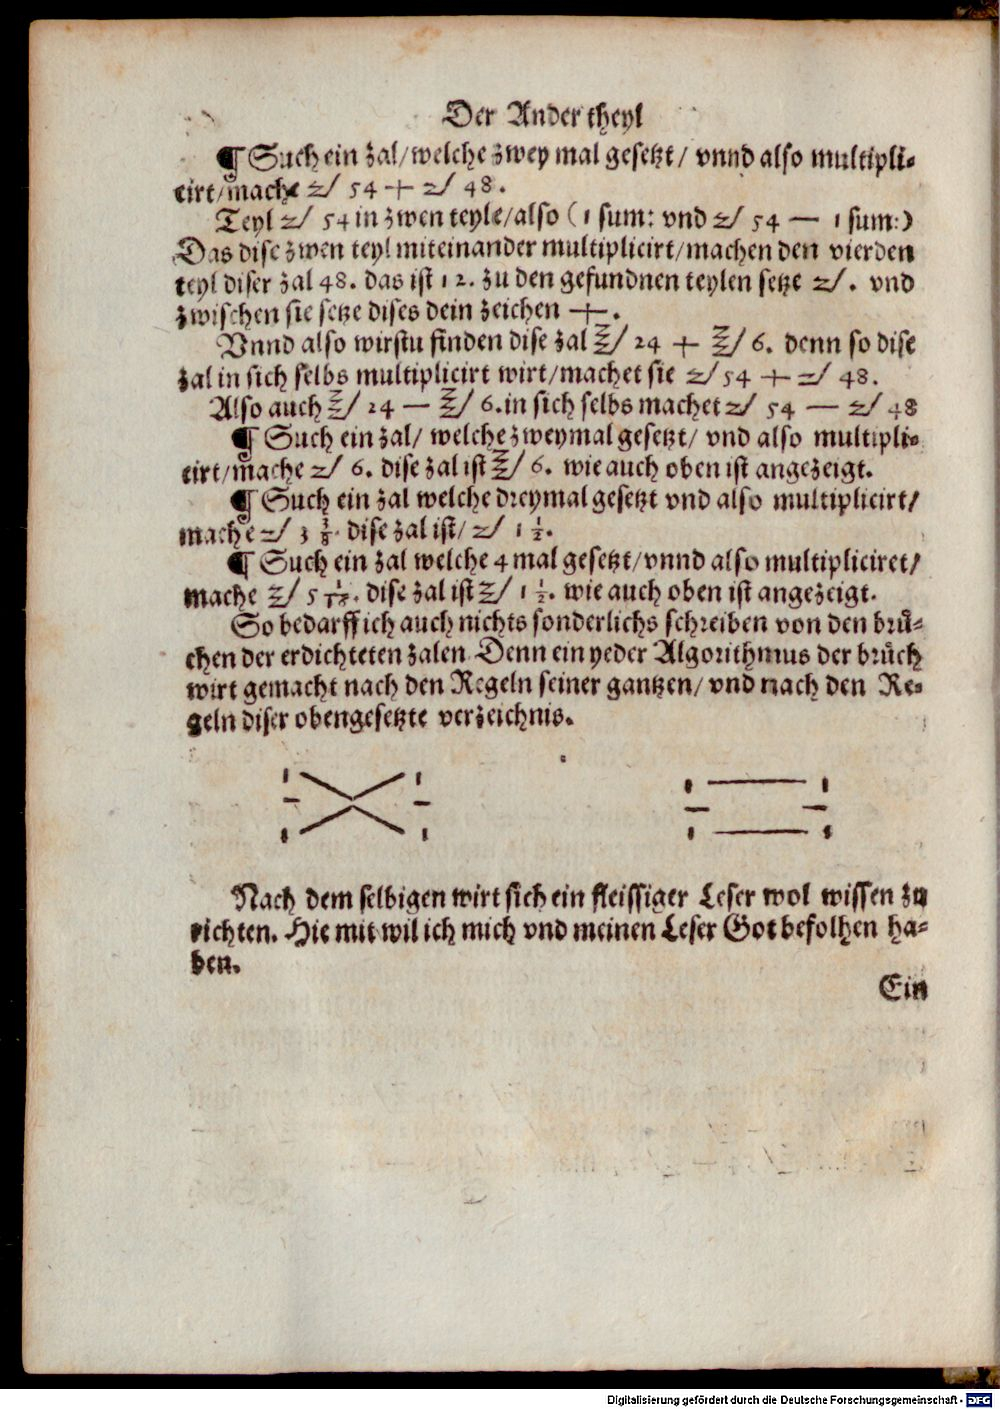 Der Ander theyl
¶ Such ein zal/welche zwey mal gesetzt/ vnnd also multipli-
cirt/mache √ 54 + √ 48.
Teyl √ 54 in zwen teyle/also (1 sum: vnd √ 54 — 1 sum:)
Das dise zwen teyl miteinander multiplicirt/machen den vierden
teyl diser zal 48. das ist 12. zu den gefundnen teylen setze √. vnd
zwischen sie setze dises dein zeichen +.
Vnnd also wirstu finden dise zal √ 24 + √ 6. denn so dise
zal in sich selbs multiplicirt wirt/machet sie √ 54 + √ 48.
Also auch √ 24 — √ 6. in sich selbs machet √ 54 — √ 48
¶ Such ein zal/ welche zweymal gesetzt/ vnd also multipli-
cirt/mache √ 6. dise zal ist √ 6. wie auch oben ist angezeigt.
¶ Such ein zal welche dreymal gesetzt vnd also multiplicirt/
mache √ 3 3/8. dise zal ist/ √ 1 1/2.
¶ Such ein zal welche 4 mal gesetzt/vnnd also multipliciret/
mache √ 5 1/16. dise zal ist √ 1 1/2. wie auch oben ist angezeigt.
So bedarff ich auch nichts sonderlichs schreiben von den bruͤ-
chen der erdichteten zalen Denn ein yeder Algorithmus der bruͤch
wirt gemacht nach den Regeln seiner gantzen/ vnd nach den Re-
geln diser obengesetzte verzeichnis.
1 1 1 1
— — — —
1 1 1 1
Nach dem selbigen wirt sich ein fleissiger Leser wol wissen zu
richten. Hie mit wil ich mich vnd meinen Leser Got befolhen ha-
ben.
Ein
Digitalisierung gefördert durch die Deutsche Forschungsgemeinschaft - DFG